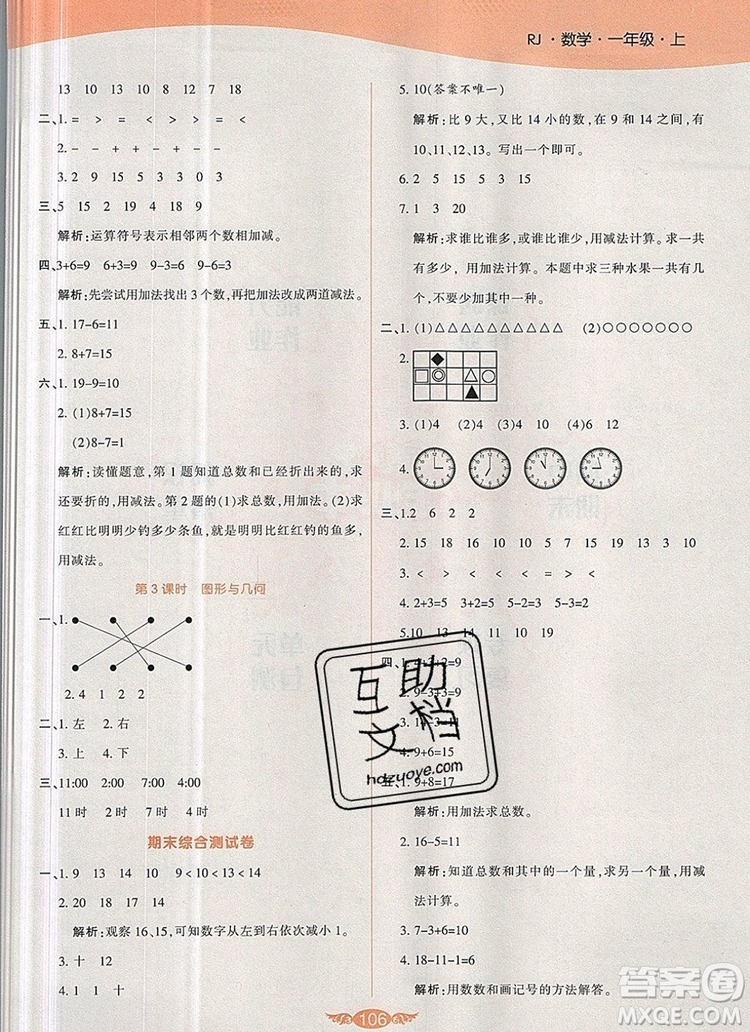 RJ·数学·一年级·上
13 10 13 8 18 10
二、1. = > < > = <
2. - + - + + -
3. 2 9 15 3 3 0 3
三、5 15 2 19 4 18 9
解析:运算符号表示相邻两个数相加减。
四、3+6=9 6+3=9 9-3=6 9-6=3
解析:先尝试用加法找出 3 个数,再把加法改成两道减法。
五、1. 17-6=11
2. 8+7=15
六、1. 19-9=10
2. (1)8+7=15
(2)8-7=1
解析:读懂题意,第 1 题知道总数和已经折出来的,求
还要折的,用减法。第 2 题的(1)求总数,用加法。(2)求
红红比明明少钓多少条鱼,就是明明比红红钓的鱼多,
用减法。
第 3 课时 图形与几何
一、1.
2. 4 1 2 2
二、1. 左 2. 右
3. 上 4. 下
三、11:00 2:00 7:00 4:00
11 时 2 时 7 时 4 时
期末综合测试卷
一、1. 9 13 14 9<13<14
2. 20 18 17 14
解析:观察 16、15,可知数字从左向右逐次减小 1。
3. 十 12
4. 15 十
5. 10(答案不唯一)
解析:比 9 大,又比 14 小的数,在 9 和 14 之间,有
10、11、12、13。写出一个即可。
6. 2 15 15 9 12
7. 1 3 20
解析:求谁比谁多,或谁比谁少,用减法计算。求一共
有多少,用加法计算。本题中求三种水果一共有几
个,不要少加其中一种。
二、1. (1)△△△△△△△△△△ (2)○○○○○○○
2.
3. (1)4 (2)4 (3)4 10 (4)6 12
4.
三、1. 2 6 2 2
2. 15 17 10 16 5 13 9 4 9 15
3. < < < > > <
4. 2+3=5 3+2=5 5-2=3 5-3=2
5. 10 12 14 11 10 19
四、1. +2=9
2. 9-3+3=9
3. 14-3=11
4. 9+6=15
五、1. 9+8=17
解析:用加法求总数。
2. 16-5=11
解析:知道总数和其中的一个量,求另一个量,用减
法计算。
3. 7-3+6=10
4. 18-11-1=6
解析:用数数和画记号的方法解答。
互助
文档
hdzuoye.com
106
答案圈
MXQE.COM